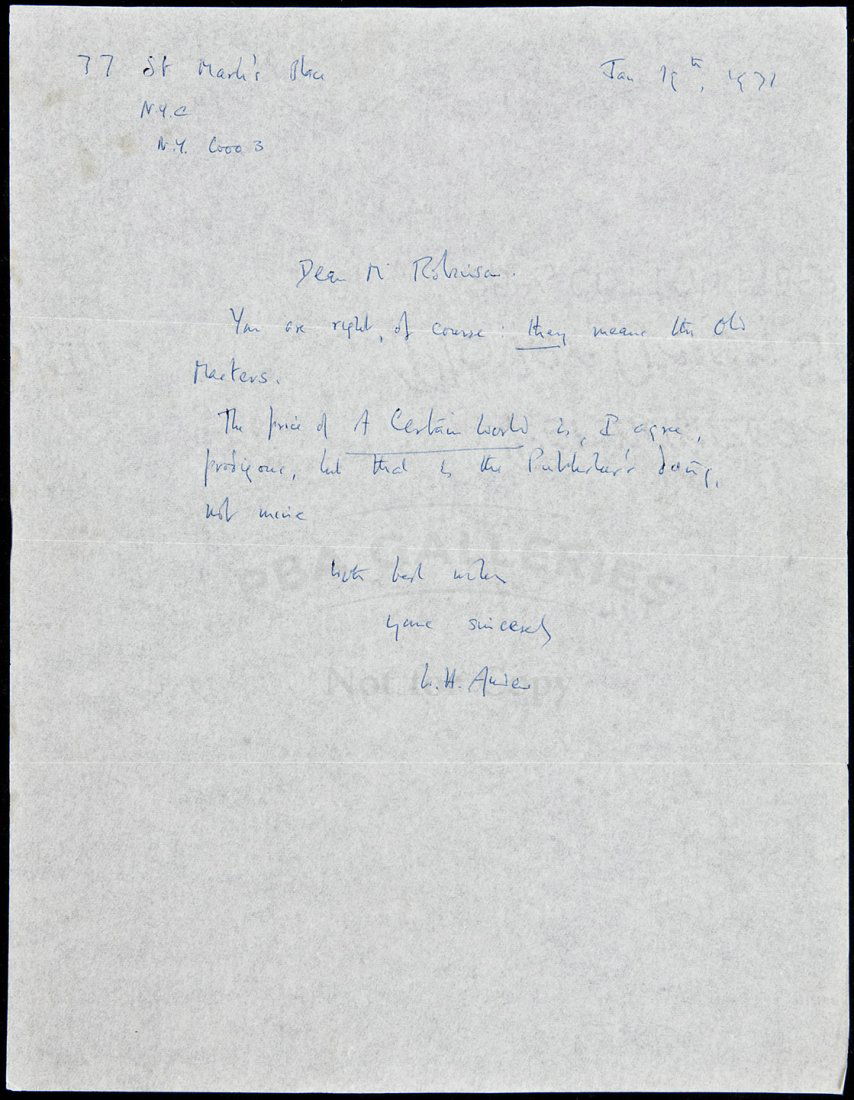 77 St Mark's Place
Jan 19th, 1971
N.Y.C
N.Y. 10003
Dear Mr Robinson.
You are right, of course: they means the Old
Masters.
The price of A Certain World is, I agree,
prodigious, but that is the Publisher's doing,
not mine
PBA GALLERIES
with best wishes
yours sincerely
W.H. Auden
Not for Copy